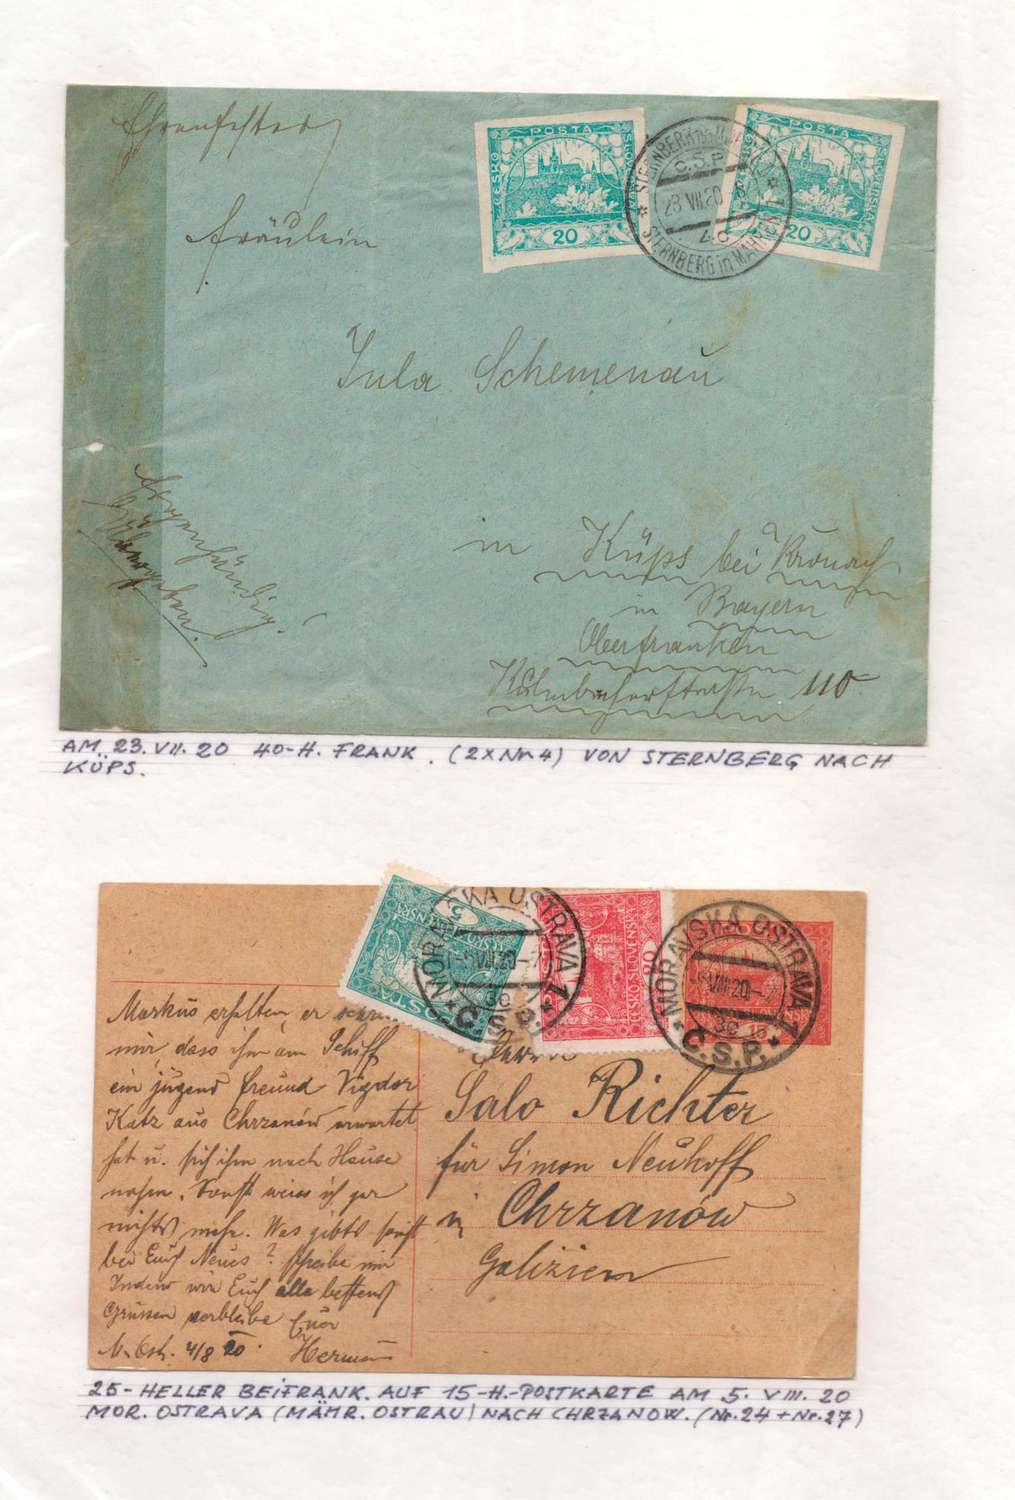 Fräulein
Jula Schemenau
in Küps bei Kronach
in Bayern
Oberfranken
Kulmbacherstraße 110
Eigenhändig!
POSTA
ČESKO
SLOVENSKÁ
20
POSTA
ČESKO
SLOVENSKÁ
20
Č.S.P.
23 VII 20
4c
STERNBERG in MÄHR
AM. 23. VII. 20 40-H. FRANK. (2XNr. 4) VON STERNBERG NACH
KÜPS.
5
POŠTA
ČESKO-SLOVENSKÁ
10
ČESKO-SLOVENSKÁ
MORAVSKÁ OSTRAVA 1
VIII 20
3e
Č.S.P.
MORAVSKÁ OSTRAVA 1
VIII 20
3e
15
Č.S.P.
Markus erhalten, er
mir, dass ihn am Schiff
ein jugend freund Vigdor
Katz aus Chrzanów erwartet
hat u. sich ihn nach Hause
nahm. Sonst weiss ich gar
nichts mehr. Was gibts sonst
bei Euch Neues? schreibe mir
Indem wir Euch alle bestens
Grüssen verbleibe Euer
M. Ostr. 4/8 20. Herman
Salo Richter
für Simon Neuhoff
in Chrzanów
Galizien
25-HELLER BEIFRANK. AUF 15-H.-POSTKARTE AM 5. VIII. 20
MOR. OSTRAVA (MÄHR. OSTRAU) NACH CHRZANOW. (Nr. 24 + Nr. 27)